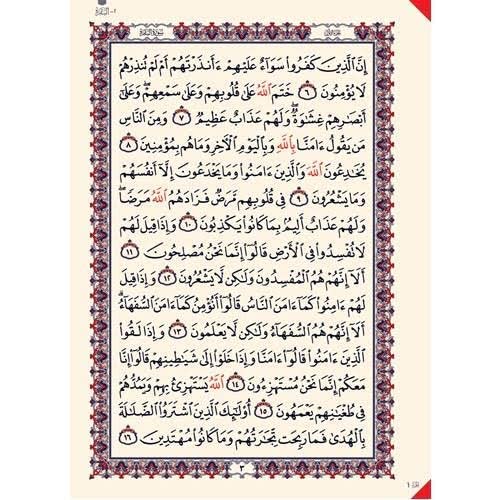 ٢-البقرة
سورة البقرة
الجزء الأول
إِنَّ الَّذِينَ كَفَرُوا سَوَاءٌ عَلَيْهِمْ ءَأَنذَرْتَهُمْ أَمْ لَمْ تُنذِرْهُمْ
لَا يُؤْمِنُونَ ٦ خَتَمَ اللَّهُ عَلَىٰ قُلُوبِهِمْ وَعَلَىٰ سَمْعِهِمْ ۖ وَعَلَىٰ
أَبْصَارِهِمْ غِشَاوَةٌ ۖ وَلَهُمْ عَذَابٌ عَظِيمٌ ٧ وَمِنَ النَّاسِ
مَن يَقُولُ ءَامَنَّا بِاللَّهِ وَبِالْيَوْمِ الْآخِرِ وَمَا هُم بِمُؤْمِنِينَ ٨
يُخَادِعُونَ اللَّهَ وَالَّذِينَ ءَامَنُوا وَمَا يَخْدَعُونَ إِلَّا أَنفُسَهُمْ
وَمَا يَشْعُرُونَ ٩ فِي قُلُوبِهِم مَّرَضٌ فَزَادَهُمُ اللَّهُ مَرَضًا ۖ
وَلَهُمْ عَذَابٌ أَلِيمٌ بِمَا كَانُوا يَكْذِبُونَ ١٠ وَإِذَا قِيلَ لَهُمْ
لَا تُفْسِدُوا فِي الْأَرْضِ قَالُوا إِنَّمَا نَحْنُ مُصْلِحُونَ ١١
أَلَا إِنَّهُمْ هُمُ الْمُفْسِدُونَ وَلَٰكِن لَّا يَشْعُرُونَ ١٢ وَإِذَا قِيلَ
لَهُمْ ءَامِنُوا كَمَا ءَامَنَ النَّاسُ قَالُوا أَنُؤْمِنُ كَمَا ءَامَنَ السُّفَهَاءُ ۗ
أَلَا إِنَّهُمْ هُمُ السُّفَهَاءُ وَلَٰكِن لَّا يَعْلَمُونَ ١٣ وَإِذَا لَقُوا
الَّذِينَ ءَامَنُوا قَالُوا ءَامَنَّا وَإِذَا خَلَوْا إِلَىٰ شَيَاطِينِهِمْ قَالُوا إِنَّا
مَعَكُمْ إِنَّمَا نَحْنُ مُسْتَهْزِءُونَ ١٤ اللَّهُ يَسْتَهْزِئُ بِهِمْ وَيَمُدُّهُمْ
فِي طُغْيَانِهِمْ يَعْمَهُونَ ١٥ أُولَٰئِكَ الَّذِينَ اشْتَرَوُا الضَّلَالَةَ
بِالْهُدَىٰ فَمَا رَبِحَت تِّجَارَتُهُمْ وَمَا كَانُوا مُهْتَدِينَ ١٦
٣
جزء ١